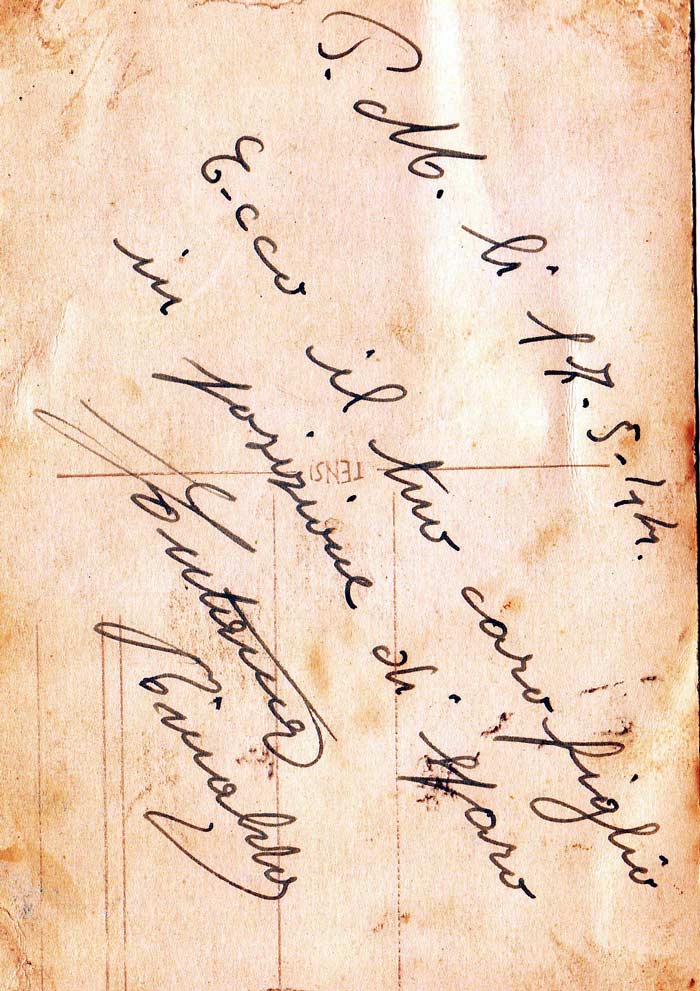 P. M. li 17.5.44.
E-cco il tuo caro figlio
in posizione di
Fontana
Rinaldo
TENSI